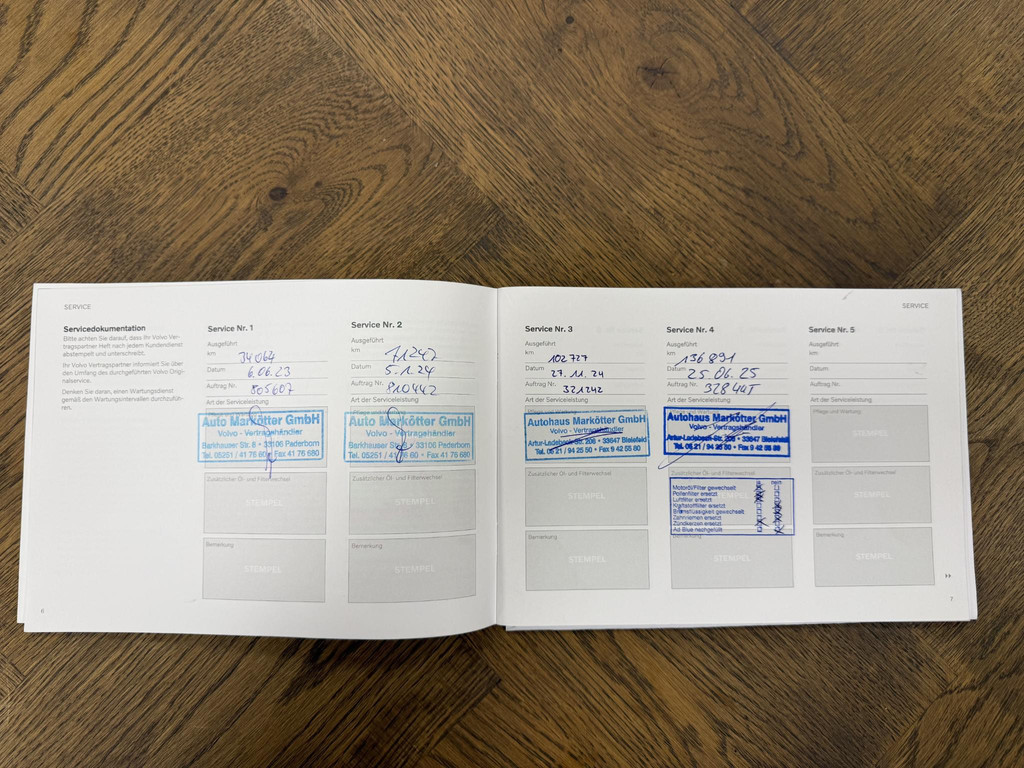 SERVICE
Servicedokumentation
Bitte achten Sie darauf, dass Ihr Volvo Ver-
tragspartner Heft nach jedem Kundendienst
abstempelt und unterschreibt.
Ihr Volvo Vertragspartner informiert Sie über
den Umfang des durchgeführten Volvo Origi-
nalservice.
Denken Sie daran, einen Wartungsdienst
gemäß den Wartungsintervallen durchzufüh-
ren.
6
Service Nr. 1
Ausgeführt
km 34064
Datum 6.06.23
Auftrag Nr. 805607
Art der Serviceleistung
Auto Markötter GmbH
Volvo - Vertragshändler
Barkhauser Str. 8 • 33106 Paderborn
Tel. 05251 / 41 76 60 • Fax 41 76 680
Zusätzlicher Öl- und Filterwechsel
STEMPEL
Bemerkung
STEMPEL
Service Nr. 2
Ausgeführt
km 71247
Datum 5.1.24
Auftrag Nr. 810442
Art der Serviceleistung
Auto Markötter GmbH
Volvo - Vertragshändler
Barkhauser Str. 8 • 33106 Paderborn
Tel. 05251 / 41 76 60 • Fax 41 76 680
Zusätzlicher Öl- und Filterwechsel
STEMPEL
Bemerkung
STEMPEL
SERVICE
Service Nr. 3
Ausgeführt
km 102727
Datum 27.11.24
Auftrag Nr. 321242
Art der Serviceleistung
Autohaus Markötter GmbH
Volvo - Vertragshändler
Artur-Ladebeck-Str. 206 • 33647 Bielefeld
Tel. 05 21 / 94 25 50 • Fax 9 42 55 60
Zusätzlicher Öl- und Filterwechsel
STEMPEL
Bemerkung
STEMPEL
Service Nr. 4
Ausgeführt
km 136891
Datum 25.06.25
Auftrag Nr.
Art der Serviceleistung
Autohaus Markötter GmbH
Volvo - Vertragshändler
Artur-Ladebeck-Str. 206 • 33647 Bielefeld
Tel. 05 21 / 94 25 50 • Fax 9 42 55 60
Zusätzlicher Öl- und Filterwechsel
Motoröl/Filter gewechselt
Pollenfilter ersetzt
Luftfilter ersetzt
Kraftstofffilter ersetzt
Bremsflüssigkeit gewechselt
Zahnriemen ersetzt
Zündkerzen ersetzt
Ad Blue nachgefüllt
Bemerkung
STEMPEL
Service Nr. 5
Ausgeführt
km
Datum
Auftrag Nr.
Art der Serviceleistung
Pflege und Wartung
STEMPEL
Zusätzlicher Öl- und Filterwechsel
STEMPEL
Bemerkung
STEMPEL
7